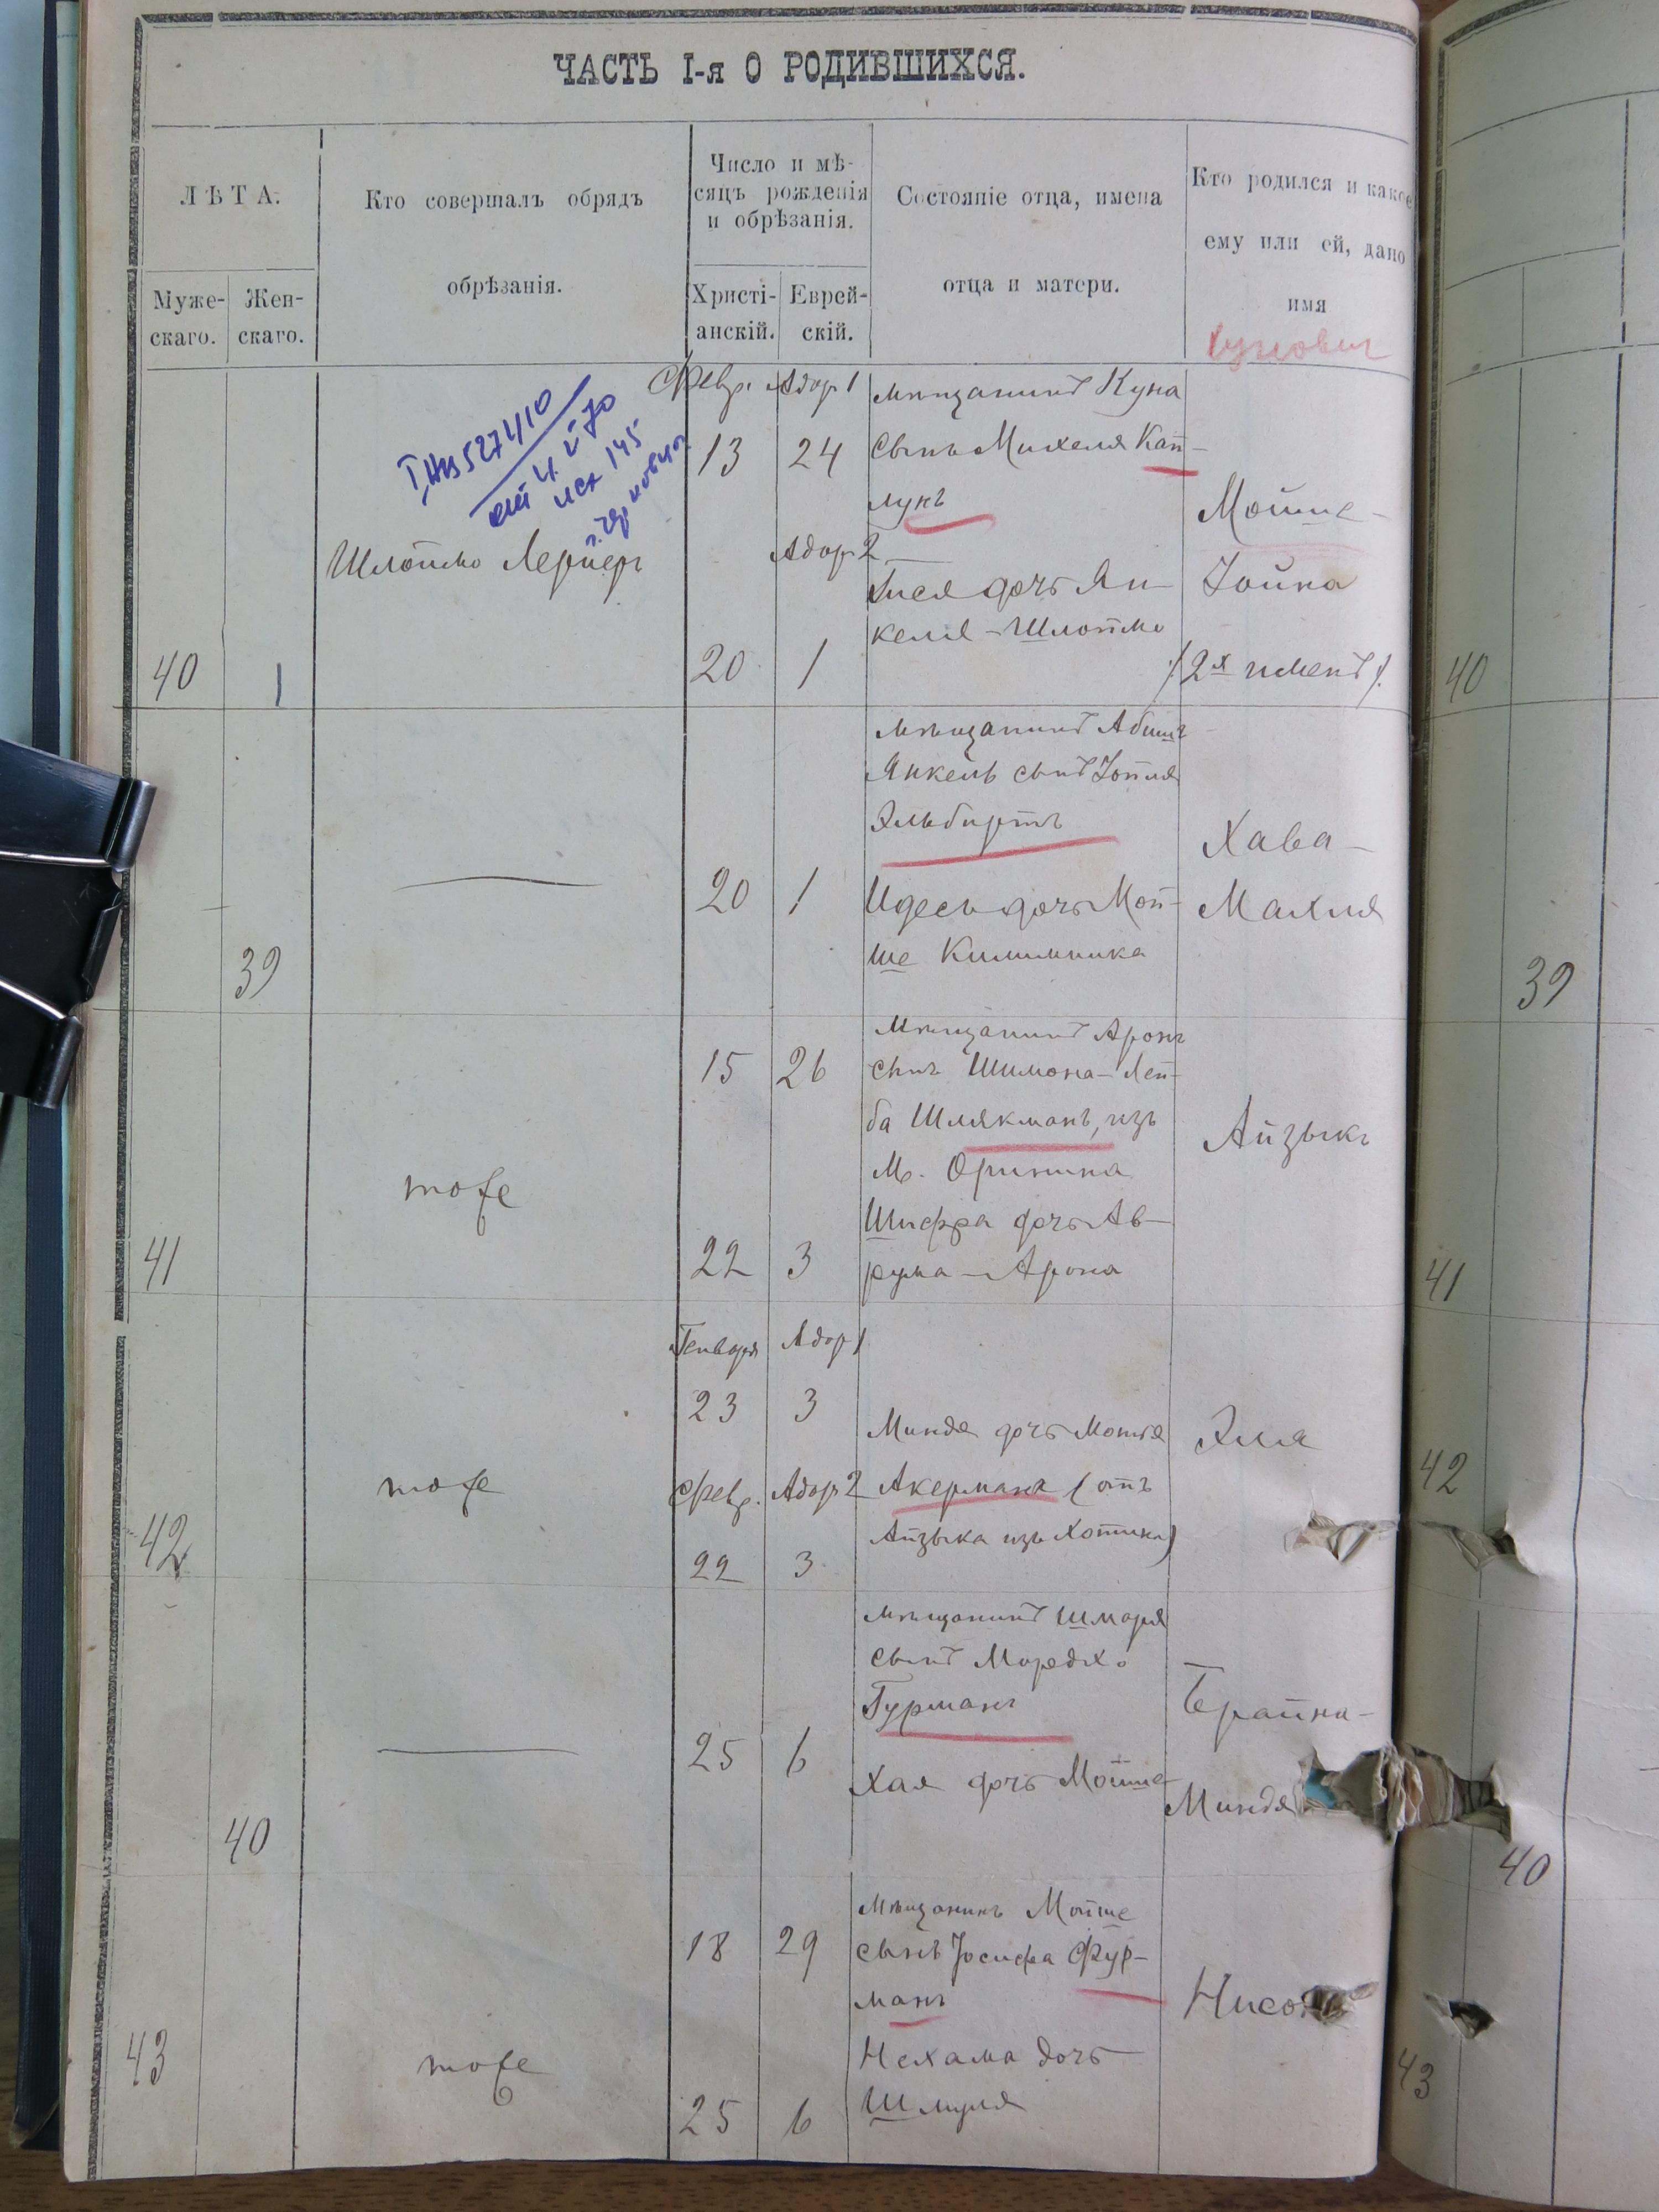 ЧАСТЬ I-я О РОДИВШИХСЯ.
ЛѢТА.
Муже-
скаго.
Жен-
скаго.
Кто совершалъ обрядъ
обрѣзанія.
Число и мѣ-
сяцъ рожденія
и обрѣзанія.
Христі-
анскій.
Еврей-
скій.
Состояніе отца, имена
отца и матери.
Кто родился и какое
ему или ей, дано
имя
40
1
Шлоймо Лернеръ
Февр. Адор 1
13 24
Адор 2
20 1
мѣщанинъ Куна
сынъ Михеля Кап-
лунъ
Гися дочь Ян-
келя-Шлоймо
Мойше-
Іойна
/2х именъ/.
40
39
20 1
мѣщанинъ Абишъ
Янкель сынъ Іойля
Эльбиртъ
Идесь дочь Мой-
ше Килимника
Хава-
Махля
39
41
тоже
15 26
22 3
мѣщанинъ Аронъ
сынъ Шимона-Лей-
ба Шлякманъ, изъ
М. Оринина
Шифра дочь Ав-
рума-Арона
Айзыкъ
41
42
тоже
Генваря Адор 1
23 3
Февр. Адор 2
22 3
Миндя дочь Мотя
Акермана (отъ
Айзыка изъ Хотина)
Эля
42
40
25 6
мѣщанинъ Шмаря
сынъ Мордхо
Гурманъ
Хая дочь Мойше
Брайна-
Миндя
40
43
тоже
18 29
25 6
Мѣщанинъ Мойше
сынъ Іосифа Фур-
манъ
Нехама дочь
Шмуля
Нисон
43